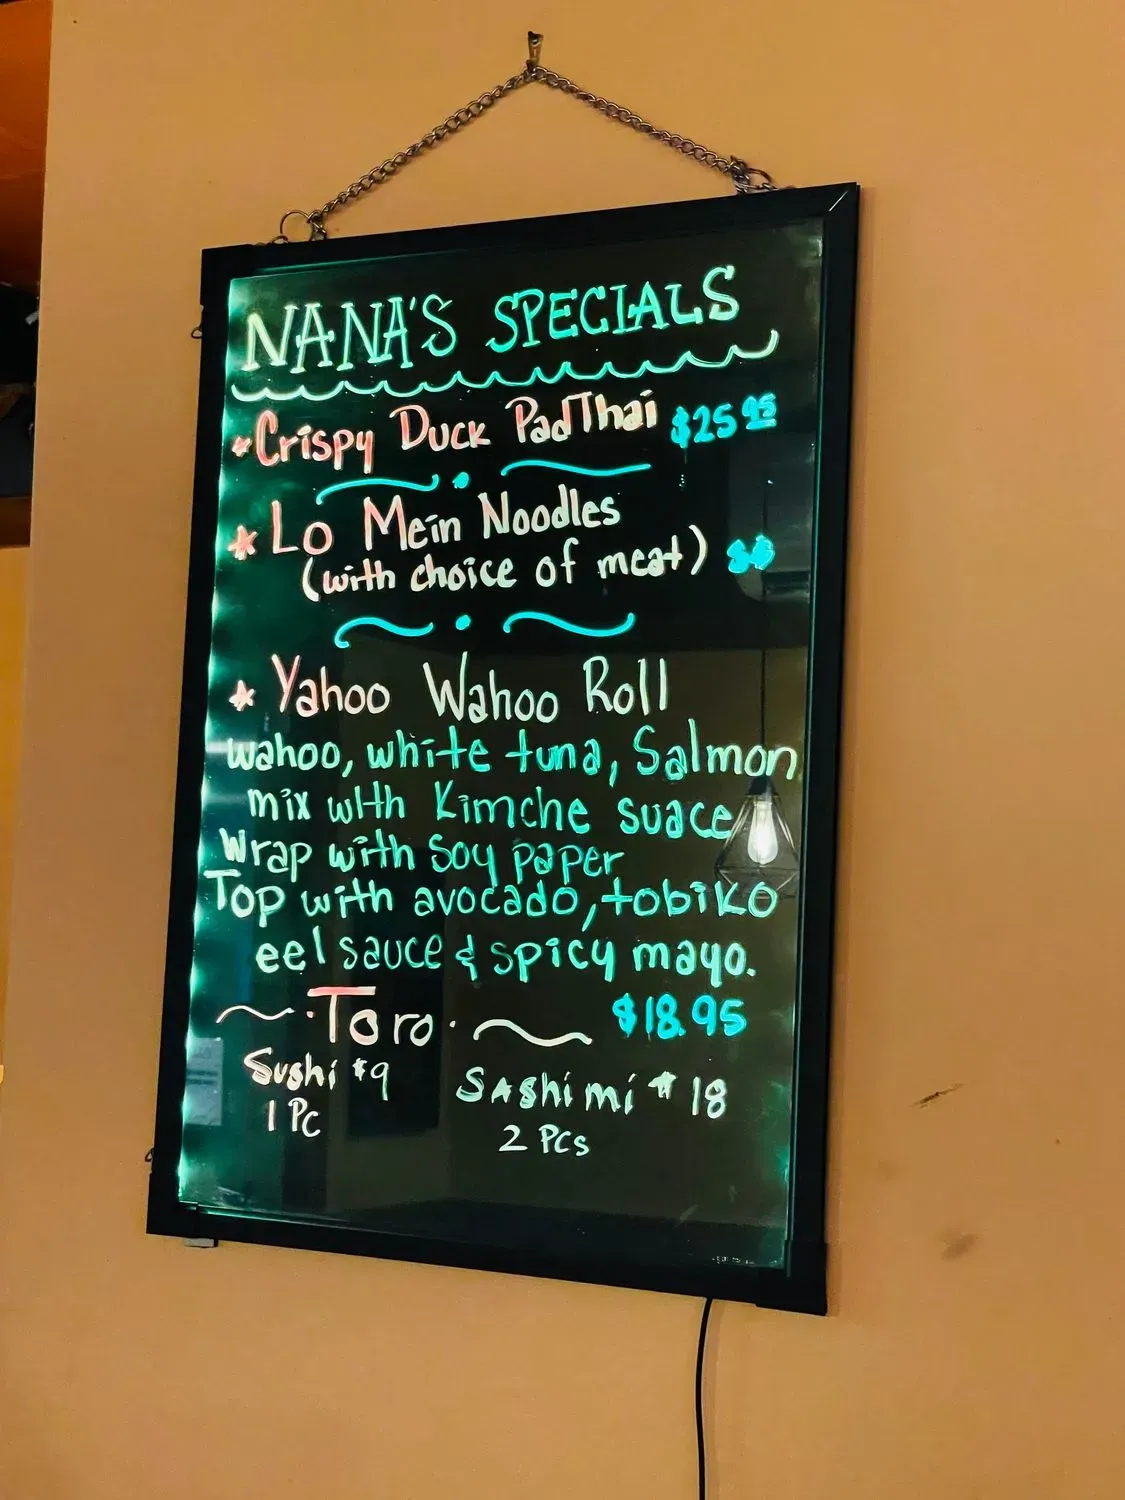 NANA'S SPECIALS
*Crispy Duck PadThai $25.95
* Lo Mein Noodles
(with choice of meat)
* Yahoo Wahoo Roll
wahoo, white tuna, Salmon
mix with Kimche suace
Wrap with Soy paper
Top with avocado, tobiko
eel sauce & spicy mayo.
$18.95
~ · Toro · ~
Sushi $9
1 Pc
Sashimi $18
2 Pcs